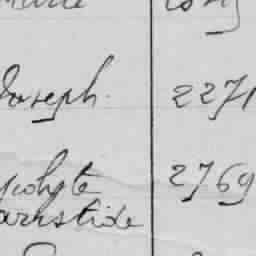 Joseph. 2271
polyte 2769
aristide